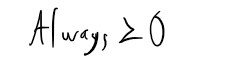 Always ≥ 0